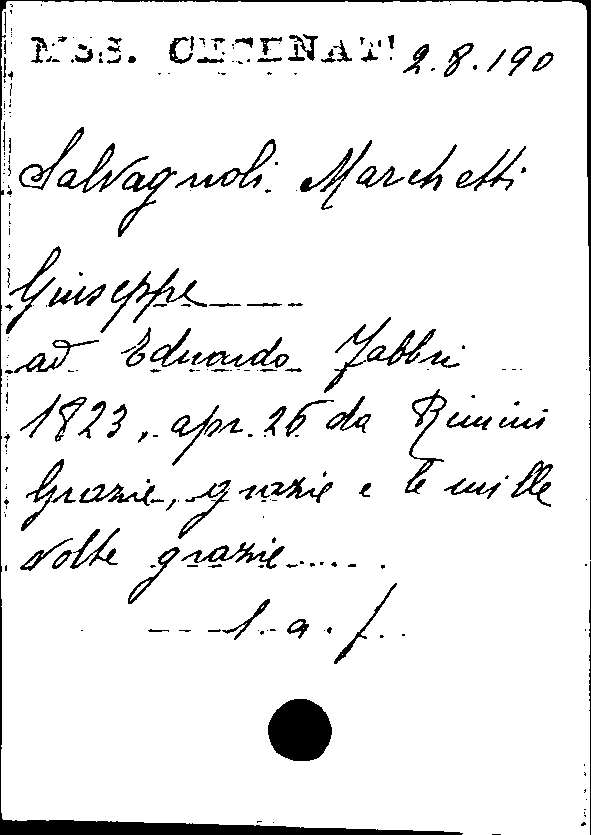 MSS. CESENATI 2.8.190
Salvagnoli Marchetti
Giuseppe
ad Eduardo Fabbri
1823, apr. 26 da Rimini
Grazie, grazie e le mille
volte grazie.....
l. a. f.